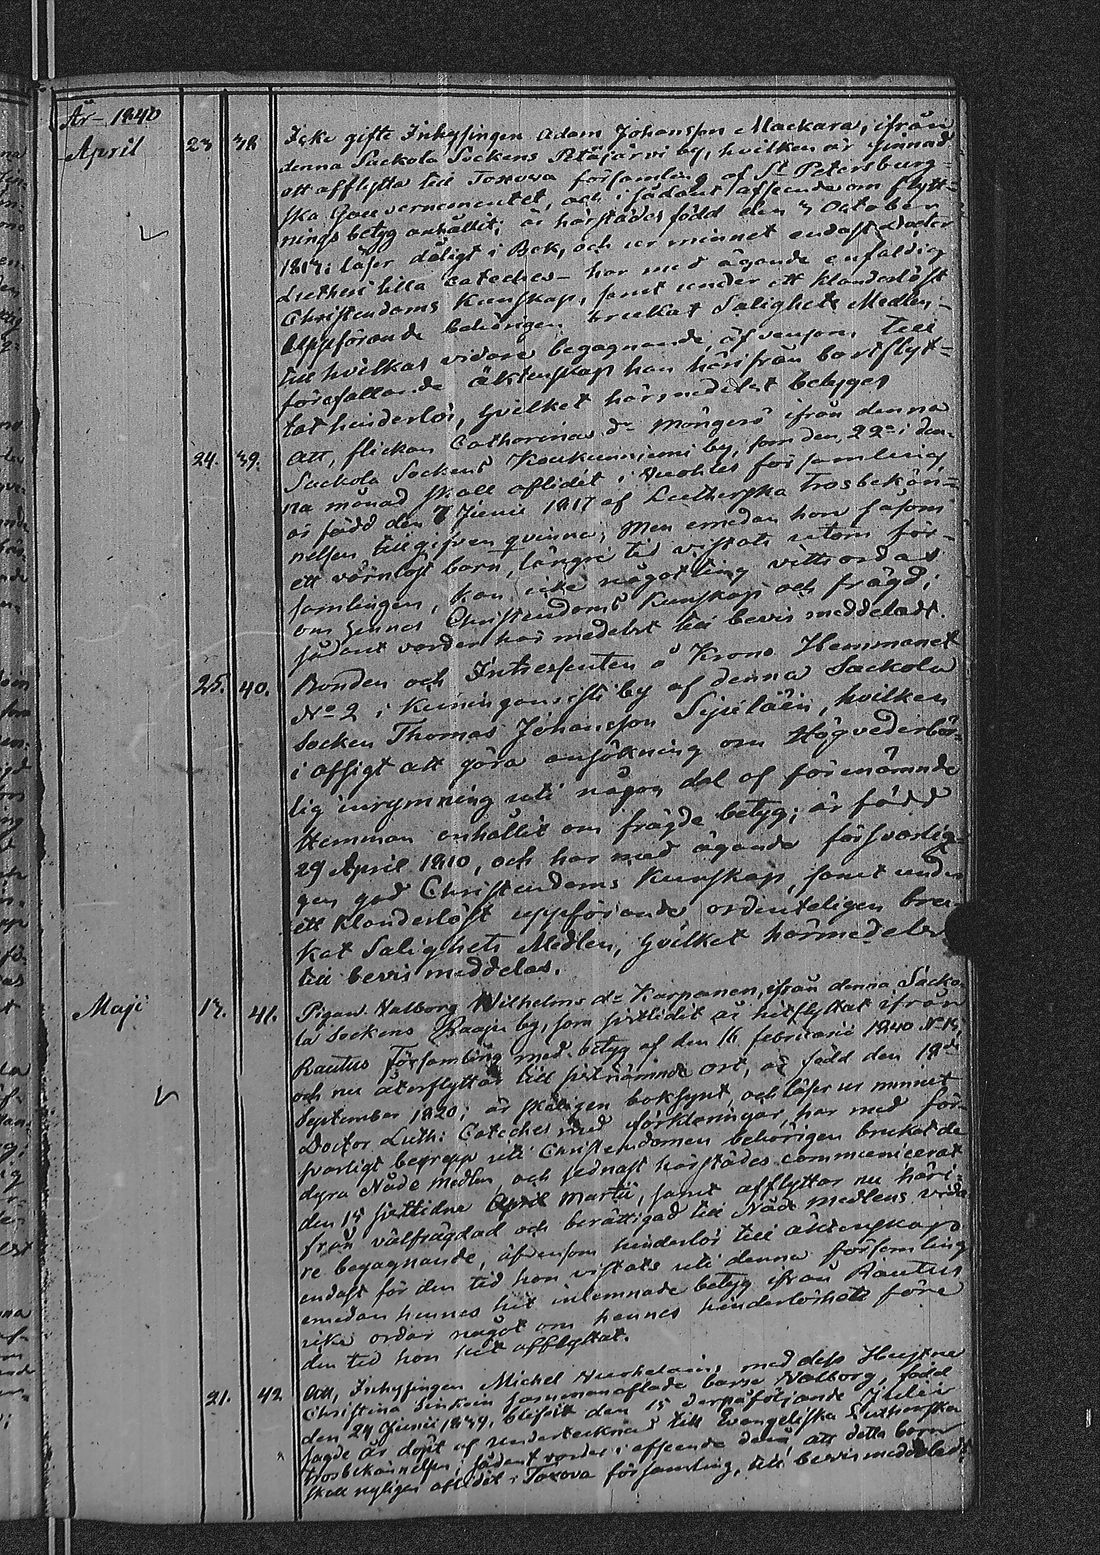 År 1840
April 23 38 Icke gifte Inhysingen Adam Johansson Mackara, ifrån
denna Sackola Sockens Petäjärvi by, hvilken är sinnad
att afflytta till Toxova församling af St Petersburg-
ska Gouvernementet, och i sådant afseende om flytt-
nings betyg anhållit; är härstädes född den 3 October
1817; läser dåligt i Bok, och ur minnet endast Doctor
Lutheri lilla Cateches – har med ägande enfaldig
Christendoms Kunskap, samt under ett klanderlöst
uppförande behörigen brukat Salighets Medlen,
till hvilkas vidare begagnande, äfvensom till
förefallande äktenskap han härifrån bortflyt-
tat hinderlös, hvilket härmedelst betyges
24. 39. Att, flickan Catharina dr Möngerö ifrån denna
Sackola Sockens Koukunniemi by, som den 22 i den-
na månad skall aflidit i Nuoltis församling,
är född den 7 Junii 1817 af Lutherska Trosbekän-
nelsen tillgifven qvinna; Men emedan hon såsom
ett värnlöst barn, längre tid vistats utom för-
samlingen, kan icke någotting vittsordas
om hennes Christendoms Kunskap och frägd;
sådant vorder härmedelst till bevis meddeladt.
25. 40. Bonden och Intressenten å Krono Hemmanet
No 2 i Kuninganristi by af denna Sackola
Socken Thomas Johansson Sipiläin, hvilken
i afsigt att göra ansökning om Högvederbör-
lig inrymning uti någon del af förenämnde
Hemman anhållit om frägde betyg; är född
29 April 1810, och har med ägande försvarlig
gen god Christendoms Kunskap, samt under
ett klanderlöst uppförande ordenteligen bru-
kat Salighets Medlen, hvilket härmedelst
till bevis meddelas.
Maji 17. 41. Pigan Valborg Wilhelms dr Karpanen, ifrån denna Sacko-
la Sockens Haaja by, som sistlidit år hitflyttat ifrån
Rautus församling med betyg af den 16 februarii 1840 No 14,
och nu återflyttar till sistnämnde ort, är född den 18de
September 1820; är skäligen boksynt, och läser ur minnet
Doctor Luth: Cateches med förklaringar, har med för-
svarligt begrepp uti Christendomen behörigen brukat de
dyra Nåde Medlen, och sednast härstädes communicerat
den 15 sistlidne Martii, samt afflyttar nu häri-
från välfrägdad och berättigad till Nåde medlens vida-
re begagnande, äfvensom hinderlös till äktenskap
endast för den tid hon vistats uti denna församling
emedan hennes hit inlemnade betyg ifrån Rautus
icke ordar något om hennes hinderlöshet före
den tid hon hit afflyttat.
21. 42. Att, Inhysingen Michel Nurhelains med dess Hustru
Christina Sinkoin sammanaflade barn Valborg, född
den 24 Junii 1839, blifvit den 15 derpåföljande Julii
sagde År döpt af undertecknad till Evangeliska Lutherska
trosbekännelsen; sådant vorder i afseende derå, att detta barn
skall nyligen aflidit i Toxova församling, till bevis meddeladt.